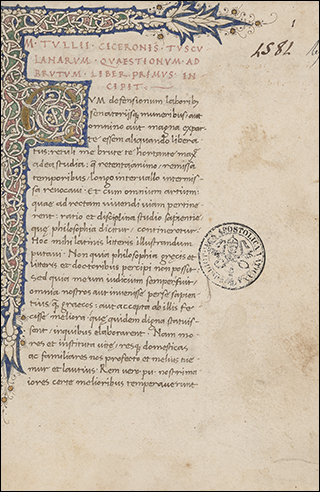 1581
M · TULLII · CICERONIS · TUSCU
LANARUM · QUAESTIONUM · AD
BRUTUM · LIBER · PRIMUS · IN
CIPIT
CUM defensionum laborib
senatoriisq muneribus aut
omnino aut magna expar
te essem aliquando libera
tus retuli me brute te hortante max
ad ea studia: q retenta animo, remissa
temporibus, longo intervallo intermis
sa revocavi · Et cum omnium artium
quae ad rectam vivendi viam pertine
rent · ratio et disciplina studio sapientie
que philosophia dicitur, contineretur
Hoc mihi latinis literis illustrandum
putavi · Non quia philosophia grecis et
literis et doctoribus percipi non possit
sed quia meum iudicium semper fuit
omnia nostros aut invenisse per se sapien
tius q graecos, aut accepta ab illis fe
cisse meliora: que quidem digna statuis
sent, in quibus elaborarent · Nam mo
res et instituta vite, resq domesticas
ac familiares nos profecto et melius tue
mur et lautius · Rem vero pu · nostri ma
iores certe melioribus temperaverunt